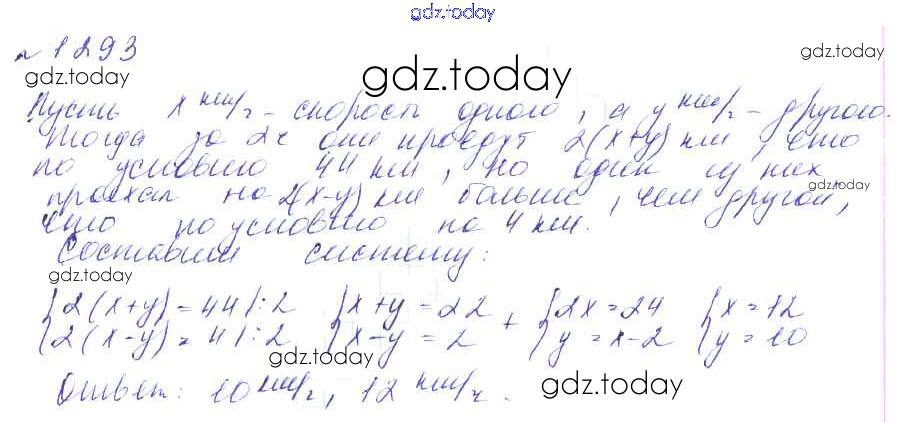 gdz.today
№1293
gdz.today
gdz.today
gdz.today
Пусть x км/ч - скорость одного, а y км/ч - другого.
Тогда за 2ч они проедут 2(x+y) км, что
по условию 44 км, но один из них
gdz.today
проехал на 2(x-y) км больше, чем другой,
что по условию на 4 км.
Составим систему:
gdz.today
{2(x+y)=44|:2 {x+y=22 + {2x=24 {x=12
{2(x-y)=4|:2 {x-y=2 {y=x-2 {y=10
gdz.today
gdz.today
Ответ: 10 км/ч, 12 км/ч.